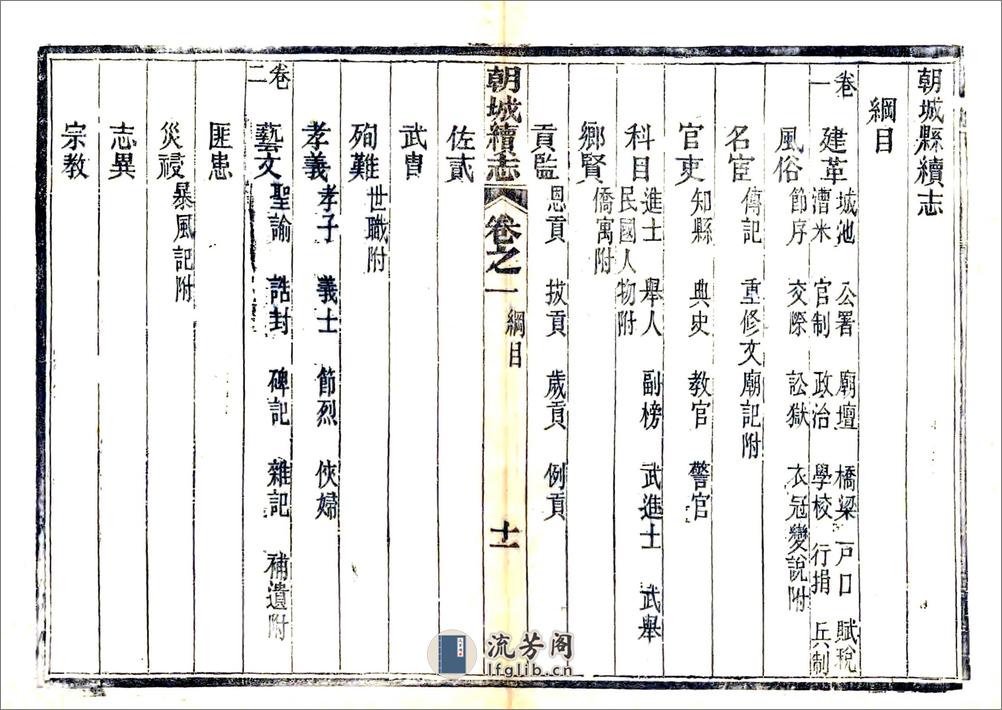 朝城縣續志
綱目
卷一
建革 城池 公署 廟壇 橋梁 戸口 賦稅
漕米 官制 政治 學校 行捐 兵制
風俗 節序 交際 訟獄 衣冠變說附
名宦 傳記 重修文廟記附
官吏 知縣 典史 教官 警官
科目 進士 舉人 副榜 武進士 武舉
民國人物附
鄉賢 僑寓附
貢監 恩貢 拔貢 歲貢 例貢
朝城續志 卷之一 綱目 十一
佐貳
武冑
殉難 世職附
孝義 孝子 義士 節烈 俠婦
卷二
藝文 聖諭 誥封 碑記 雜記 補遺附
匪患
災祲 暴風記附
志異
宗教
流芳阁
lfglib.cn